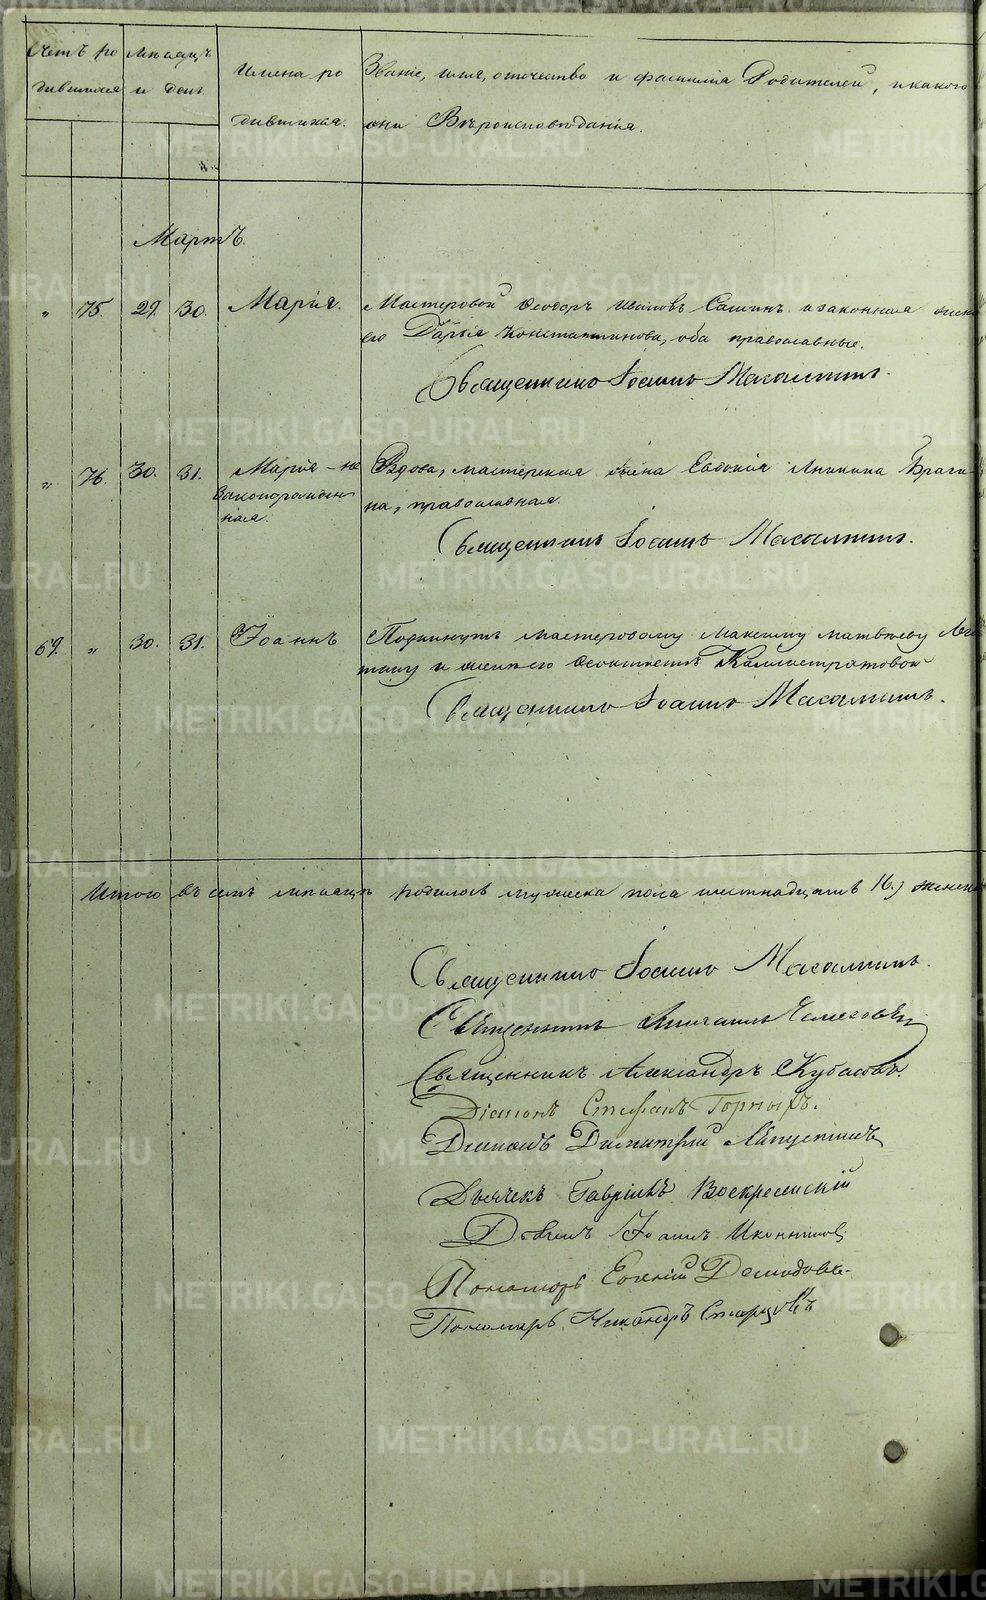 Счетъ ро
дившихся
Мѣсяцъ
и день
м.
Имена ро
дившихся.
Званіе, имя, отечество и фамилія Родителей, и какого
они Вѣроисповѣданія.
Мартъ.
" 75. 29. 30. Марія. Мастеровой Ѳеодоръ Сашинъ и законная жена
его Дарья Константинова, оба православные.
Священникъ Іоаннъ Масалкинъ.
" 76. 30. 31. Марія – не Вдова, мастерская жена Евдокія Аникина Браги-
законорожден
ная.
на, православная.
Священникъ Іоаннъ Масалкинъ.
69. " 30. 31. Іоаннъ Подкинутъ мастеровому Максиму Матвѣеву
и женѣ его Каллистратовой
Священникъ Іоаннъ Масалкинъ.
Итого въ семъ мѣсяцѣ родилось мужеска пола шестнадцать 16.) женска
Священникъ Іоаннъ Масалкинъ.
Священникъ
Священникъ Александръ Кубасовъ.
Діаконъ Стефанъ Горныхъ.
Діаконъ Димитрій
Дьячекъ Гавріилъ Воскресенскій
Дьячекъ Іоаннъ Иконниковъ
Пономарь Евгеній
Пономарь Никандръ Старцовъ
METRIKI.GASO-URAL.RU